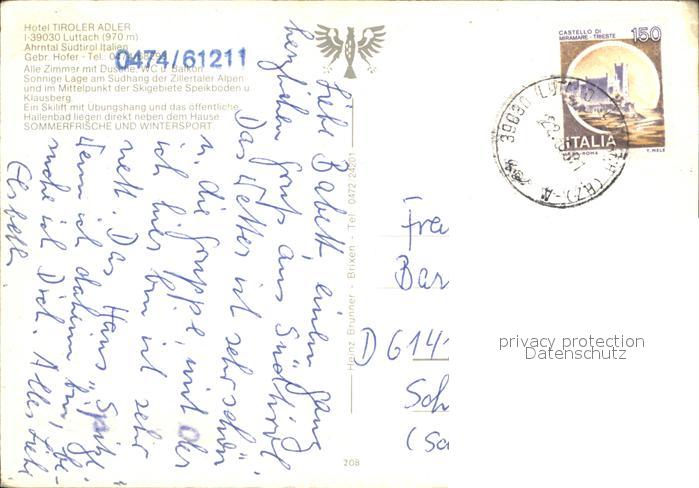 Hotel TIROLER ADLER
I-39030 Luttach (970 m)
Ahrntal Südtirol Italien
Gebr. Hofer - Tel.
0474/61211
Alle Zimmer mit Dusche, WC u. Balkon
Sonnige Lage am Südhang der Zillertaler Alpen
und im Mittelpunkt der Skigebiete Speikboden u.
Klausberg.
Ein Skilift mit Übungshang und das öffentliche
Hallenbad liegen direkt neben dem Hause
SOMMERFRISCHE UND WINTERSPORT
Liebe Babett, einen ganz
herzlichen Gruß aus Südtirol
Das Wetter ist sehr schön
u. die Gruppe, mit der
ich hier bin ist sehr
nett. Das Haus "Spitze"
Wenn ich daheim bin, be-
suche ich Dich. Alles Liebe
Elsbeth
Heinz Brunner - Brixen - Tel. 0472-24201
208
CASTELLO DI
MIRAMARE - TRIESTE
150
ITALIA
ROMA
T. MELE
39030
Bar
D 614
Sch
(Sc
privacy protection
Datenschutz